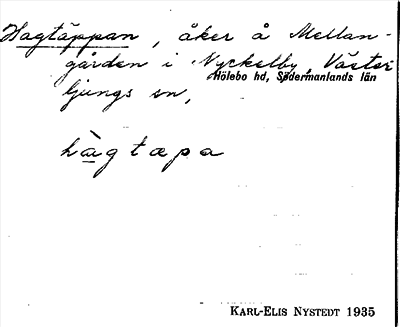 Hagtäppan, åker å Mellan-
gården i Nyckelby, Väster
Hölebo hd, Södermanlands län
ljungs sn,
hàgtæpa
KARL-ELIS NYSTEDT 1935